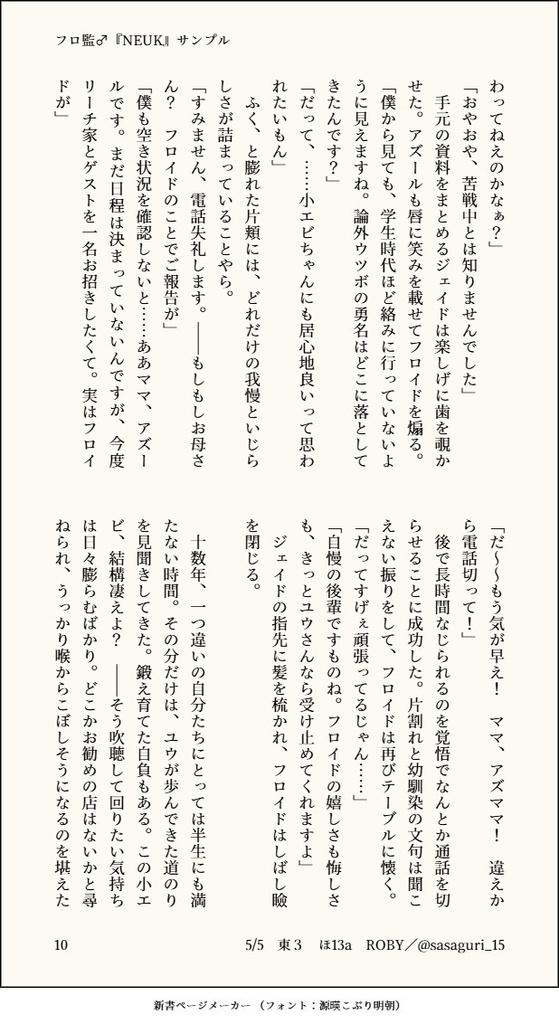 フロ監♂『NEUK』サンプル
わってねえのかなぁ？」
「おやおや、苦戦中とは知りませんでした」
　手元の資料をまとめるジェイドは楽しげに歯を覗か
せた。アズールも唇に笑みを載せてフロイドを煽る。
「僕から見ても、学生時代ほど絡みに行っていないよ
うに見えますね。論外ウツボの勇名はどこに落として
きたんです？」
「だって、……小エビちゃんにも居心地良いって思わ
れたいもん」
　ふく、と膨れた片頬には、どれだけの我慢といじら
しさが詰まっていることやら。
「すみません、電話失礼します。――もしもしお母さ
ん？　フロイドのことでご報告が」
「僕も空き状況を確認しないと……ああママ、アズー
ルです。まだ日程は決まっていないんですが、今度
リーチ家とゲストを一名お招きしたくて。実はフロイ
ドが」
「だ〜〜もう気が早え！　ママ、アズママ！　違えか
ら電話切って！」
　後で長時間なじられるのを覚悟でなんとか通話を切
らせることに成功した。片割れと幼馴染の文句は聞こ
えない振りをして、フロイドは再びテーブルに懐く。
「だってすげぇ頑張ってるじゃん……」
「自慢の後輩ですものね。フロイドの嬉しさも悔しさ
も、きっとユウさんなら受け止めてくれますよ」
　ジェイドの指先に髪を梳かれ、フロイドはしばし瞼
を閉じる。
　十数年、一つ違いの自分たちにとっては半生にも満
たない時間。その分だけは、ユウが歩んできた道のり
を見聞きしてきた。鍛え育てた自負もある。この小エ
ビ、結構凄えよ？　――そう吹聴して回りたい気持ち
は日々膨らむばかり。どこかお勧めの店はないかと尋
ねられ、うっかり喉からこぼしそうになるのを堪えた
10
5/5　東３　ほ13a　ROBY／@sasaguri_15
新書ページメーカー （フォント：源暎こぶり明朝）